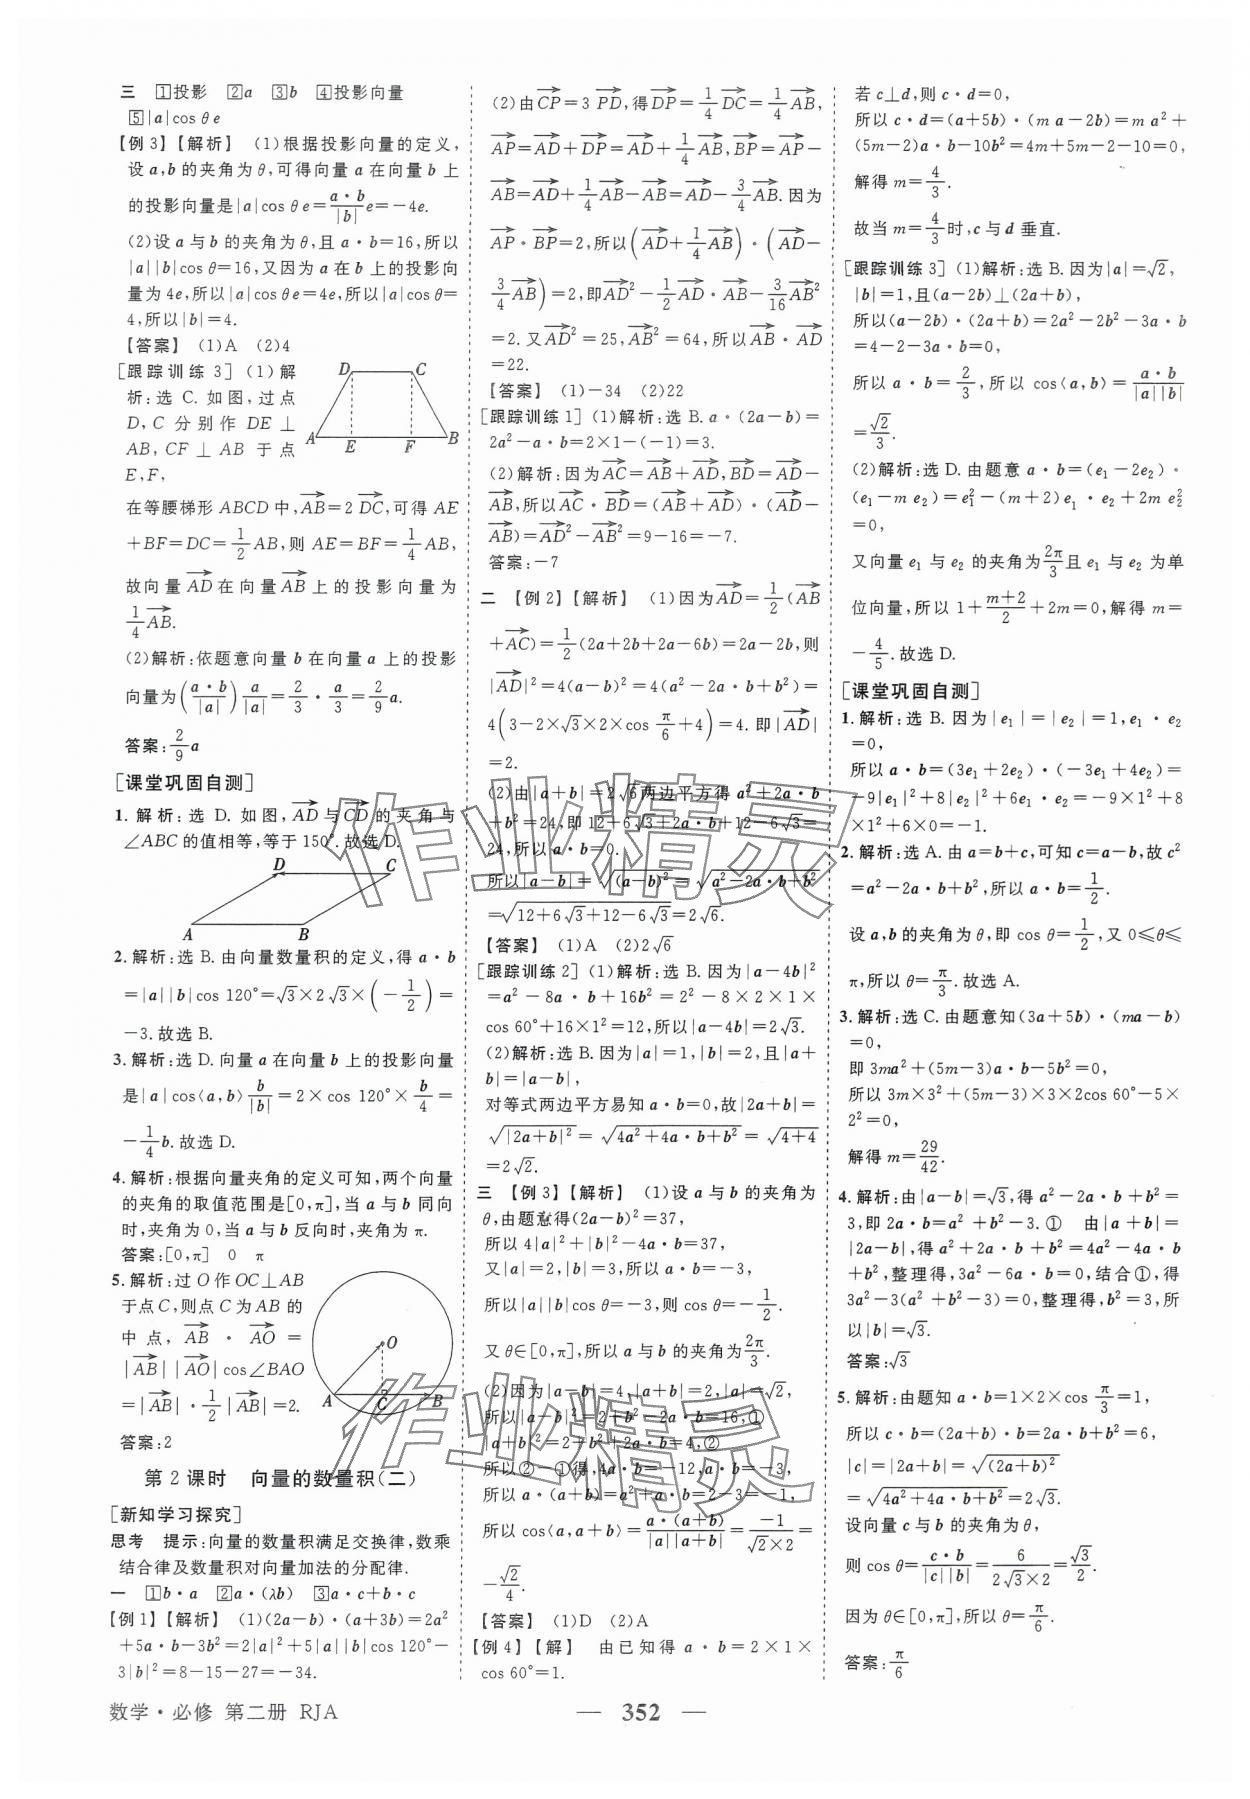 三 ①投影 ②a ③b ④投影向量
⑤|a|cos θe
【例3】【解析】 (1)根据投影向量的定义,
设a,b的夹角为θ,可得向量a在向量b上
的投影向量是|a|cos θe=\frac{a·b}{|b|}e=-4e.
(2)设a与b的夹角为θ,且a·b=16,所以
|a||b|cos θ=16,又因为a在b上的投影向
量为4e,所以|a|cos θe=4e,所以|a|cos θ=
4,所以|b|=4.
【答案】 (1)A (2)4
[跟踪训练3] (1)解
析:选C.如图,过点
D,C分别作DE⊥
AB,CF⊥AB于点
E,F,
D C
A E F B
在等腰梯形ABCD中,\vec{AB}=2\vec{DC},可得AE
+BF=DC=\frac{1}{2}AB,则AE=BF=\frac{1}{4}AB,
故向量\vec{AD}在向量\vec{AB}上的投影向量为
\frac{1}{4}\vec{AB}.
(2)解析:依题意向量b在向量a上的投影
向量为(\frac{a·b}{|a|})\frac{a}{|a|}=\frac{2}{3}·\frac{a}{3}=\frac{2}{9}a.
答案:\frac{2}{9}a
[课堂巩固自测]
1.解析:选D.如图,\vec{AD}与\vec{CD}的夹角与
∠ABC的值相等,等于150°.故选D.
D C
A B
2.解析:选B.由向量数量积的定义,得a·b
=|a||b|cos 120°=√3×2√3×(-\frac{1}{2})=
-3.故选B.
3.解析:选D.向量a在向量b上的投影向量
是|a|cos⟨a,b⟩\frac{b}{|b|}=2×cos 120°×\frac{b}{4}=
-\frac{1}{4}b.故选D.
4.解析:根据向量夹角的定义可知,两个向量
的夹角的取值范围是[0,π],当a与b同向
时,夹角为0,当a与b反向时,夹角为π.
答案:[0,π] 0 π
5.解析:过O作OC⊥AB
于点C,则点C为AB的
中点,\vec{AB}·\vec{AO}=
|\vec{AB}||\vec{AO}|cos∠BAO
=|\vec{AB}|·\frac{1}{2}|\vec{AB}|=2.
答案:2
O
A C B
第2课时 向量的数量积(二)
[新知学习探究]
思考 提示:向量的数量积满足交换律,数乘
结合律及数量积对向量加法的分配律.
一 ①b·a ②a·(λb) ③a·c+b·c
【例1】【解析】 (1)(2a-b)·(a+3b)=2a²
+5a·b-3b²=2|a|²+5|a||b|cos 120°-
3|b|²=8-15-27=-34.
(2)由\vec{CP}=3\vec{PD},得\vec{DP}=\frac{1}{4}\vec{DC}=\frac{1}{4}\vec{AB},
\vec{AP}=\vec{AD}+\vec{DP}=\vec{AD}+\frac{1}{4}\vec{AB},\vec{BP}=\vec{AP}-
\vec{AB}=\vec{AD}+\frac{1}{4}\vec{AB}-\vec{AB}=\vec{AD}-\frac{3}{4}\vec{AB}.因为
\vec{AP}·\vec{BP}=2,所以(\vec{AD}+\frac{1}{4}\vec{AB})·(\vec{AD}-
\frac{3}{4}\vec{AB})=2,即\vec{AD}²-\frac{1}{2}\vec{AD}·\vec{AB}-\frac{3}{16}\vec{AB}²
=2.又\vec{AD}²=25,\vec{AB}²=64,所以\vec{AB}·\vec{AD}
=22.
【答案】 (1)-34 (2)22
[跟踪训练1] (1)解析:选B.a·(2a-b)=
2a²-a·b=2×1-(-1)=3.
(2)解析:因为\vec{AC}=\vec{AB}+\vec{AD},\vec{BD}=\vec{AD}-
\vec{AB},所以\vec{AC}·\vec{BD}=(\vec{AB}+\vec{AD})·(\vec{AD}-
\vec{AB})=\vec{AD}²-\vec{AB}²=9-16=-7.
答案:-7
二 【例2】【解析】 (1)因为\vec{AD}=\frac{1}{2}(\vec{AB}
+\vec{AC})=\frac{1}{2}(2a+2b+2a-6b)=2a-2b,则
|\vec{AD}|²=4(a-b)²=4(a²-2a·b+b²)=
4(3-2×√3×2×cos \frac{π}{6}+4)=4.即|\vec{AD}|
=2.
(2)由|a+b|=2√6两边平方得a²+2a·b
+b²=24,即12+6√3+2a·b+12-6√3=
24,所以a·b=0.
所以|a-b|=√((a-b)²)=√(a²-2a·b+b²)
=√(12+6√3+12-6√3)=2√6.
【答案】 (1)A (2)2√6
[跟踪训练2] (1)解析:选B.因为|a-4b|²
=a²-8a·b+16b²=2²-8×2×1×
cos 60°+16×1²=12,所以|a-4b|=2√3.
(2)解析:选B.因为|a|=1,|b|=2,且|a+
b|=|a-b|,
对等式两边平方易知a·b=0,故|2a+b|=
√(|2a+b|²)=√(4a²+4a·b+b²)=√(4+4)
=2√2.
三 【例3】【解析】 (1)设a与b的夹角为
θ,由题意得(2a-b)²=37,
所以4|a|²+|b|²-4a·b=37,
又|a|=2,|b|=3,所以a·b=-3,
所以|a||b|cos θ=-3,则cos θ=-\frac{1}{2}.
又θ∈[0,π],所以a与b的夹角为\frac{2π}{3}.
(2)因为|a-b|=4,|a+b|=2,|a|=√2,
所以|a-b|²=2+b²-2a·b=16,①
|a+b|²=2+b²+2a·b=4,②
所以②-①得,4a·b=-12,a·b=-3,
所以a·(a+b)=a²+a·b=2-3=-1,
所以cos⟨a,a+b⟩=\frac{a·(a+b)}{|a||a+b|}=\frac{-1}{√2×2}=
-\frac{√2}{4}.
【答案】 (1)D (2)A
【例4】【解】 由已知得a·b=2×1×
cos 60°=1.
若c⊥d,则c·d=0,
所以c·d=(a+5b)·(ma-2b)=ma²+
(5m-2)a·b-10b²=4m+5m-2-10=0,
解得m=\frac{4}{3}.
故当m=\frac{4}{3}时,c与d垂直.
[跟踪训练3] (1)解析:选B.因为|a|=√2,
|b|=1,且(a-2b)⊥(2a+b),
所以(a-2b)·(2a+b)=2a²-2b²-3a·b
=4-2-3a·b=0,
所以a·b=\frac{2}{3},所以cos⟨a,b⟩=\frac{a·b}{|a||b|}
=\frac{√2}{3}.
(2)解析:选D.由题意a·b=(e₁-2e₂)·
(e₁-me₂)=e₁²-(m+2)e₁·e₂+2me₂²
=0,
又向量e₁与e₂的夹角为\frac{2π}{3}且e₁与e₂为单
位向量,所以1+\frac{m+2}{2}+2m=0,解得m=
-\frac{4}{5}.故选D.
[课堂巩固自测]
1.解析:选B.因为|e₁|=|e₂|=1,e₁·e₂
=0,
所以a·b=(3e₁+2e₂)·(-3e₁+4e₂)=
-9|e₁|²+8|e₂|²+6e₁·e₂=-9×1²+8
×1²+6×0=-1.
2.解析:选A.由a=b+c,可知c=a-b,故c²
=a²-2a·b+b²,所以a·b=\frac{1}{2}.
设a,b的夹角为θ,即cos θ=\frac{1}{2},又0≤θ≤
π,所以θ=\frac{π}{3}.故选A.
3.解析:选C.由题意知(3a+5b)·(ma-b)
=0,
即3ma²+(5m-3)a·b-5b²=0,
所以3m×3²+(5m-3)×3×2cos 60°-5×
2²=0,
解得m=\frac{29}{42}.
4.解析:由|a-b|=√3,得a²-2a·b+b²=
3,即2a·b=a²+b²-3.① 由|a+b|=
|2a-b|,得a²+2a·b+b²=4a²-4a·b
+b²,整理得,3a²-6a·b=0,结合①,得
3a²-3(a²+b²-3)=0,整理得,b²=3,所
以|b|=√3.
答案:√3
5.解析:由题知a·b=1×2×cos \frac{π}{3}=1,
所以c·b=(2a+b)·b=2a·b+b²=6,
|c|=|2a+b|=√((2a+b)²)
=√(4a²+4a·b+b²)=2√3.
设向量c与b的夹角为θ,
则cos θ=\frac{c·b}{|c||b|}=\frac{6}{2√3×2}=\frac{√3}{2}.
因为θ∈[0,π],所以θ=\frac{π}{6}.
答案:\frac{π}{6}
作业精灵
作业精灵
数学·必修 第二册 RJA
— 352 —